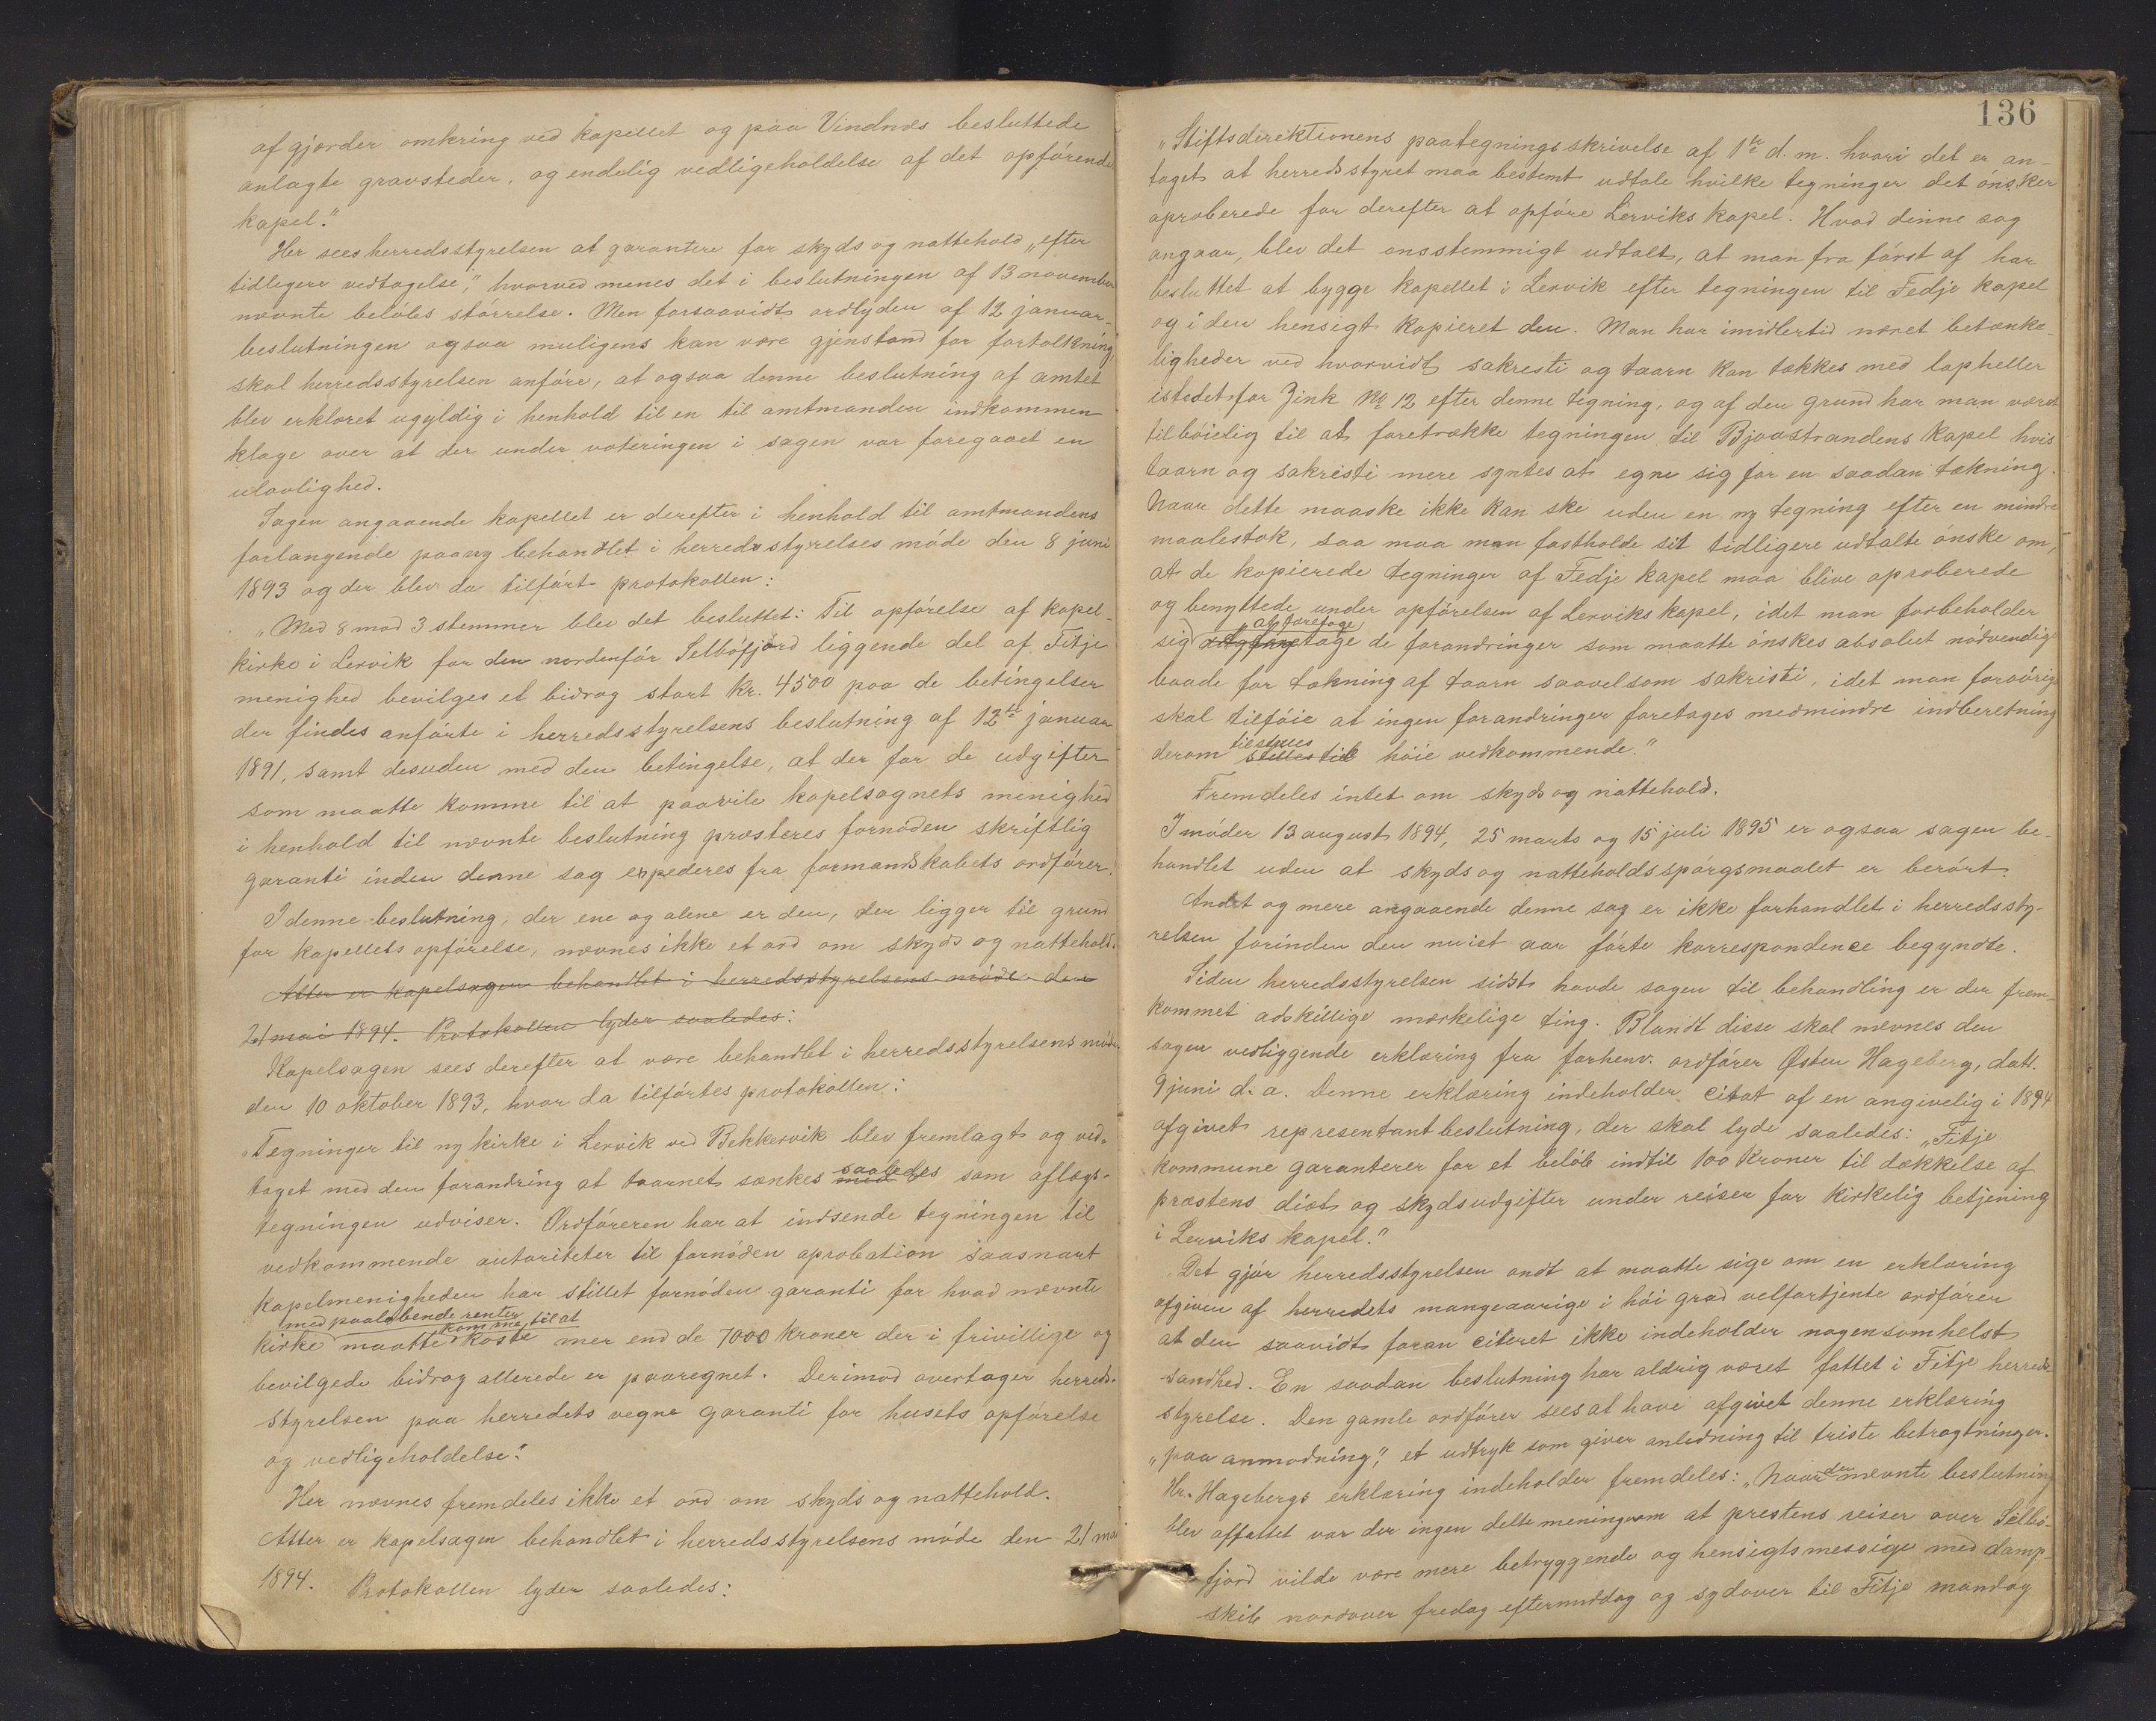 af gjærder omkring ved kapellet og paa Vindnæs besluttede
anlagte gravsteder, og endelig vedligeholdelse af det opførende
kapel."
Her sees herredsstyrelsen at garantere for skyds og nattehold „efter
tidligere vedtagelse", hvorved menes det i beslutningen af 13 november
nævnte beløbs størrelse. Men forsaavidt ordlyden af 12 januar-
beslutningen ogsaa muligens kan være gjenstand for fortolkning
skal herredsstyrelsen anføre, at ogsaa denne beslutning af amtet
blev erklæret ugyldig i henhold til en til amtmanden indkommen
klage over at der under voteringen i sagen var foregaaet en
ulovlighed.
Sagen angaaende kapellet er derefter i henhold til amtmandens
forlangende paany behandlet i herredsstyrelses møde den 8 juni
1893 og der blev da tilført protokollen:
„Med 8 mod 3 stemmer blev det besluttet: Til opførelse af kapel-
kirke i Lervik for den nordenfor Selbøfjord liggende del af Fitje
menighed bevilges et bidrag stort kr. 4500 paa de betingelser
der findes anførte i herredsstyrelsens beslutning af 12te januar
1891, samt desuden med den betingelse, at der for de udgifter
som maatte komme til at paavile kapelsognets menighed
i henhold til nævnte beslutning præsteres fornøden skriftlig
garanti inden denne sag expederes fra formandskabets ordfører.
I denne beslutning, der ene og alene er den, der ligger til grund
for kapellets opførelse, nævnes ikke et ord om skyds og nattehold.
Atter er kapelsagen behandlet i herredsstyrelsens møde den
21 mai 1894. Protokollen lyder saaledes:
Kapelsagen sees derefter at være behandlet i herredsstyrelsens møde
den 10 oktober 1893, hvor da tilførtes protokollen:
„Tegninger til ny kirke i Lervik ved Bekkervik blev fremlagt og ved-
taget med den forandring at taarnet sænkes med saaledes som aflægs-
tegningen udviser. Ordføreren har at indsende tegningen til
vedkommende autoriteter til fornøden aprobation saasnart
kapelmenigheden har stillet fornøden garanti for hvad nævnte
med paaløbende renter komme til at
kirke maatte koste mer end de 7000 kroner der i frivillige og
bevilgede bidrag allerede er paaregnet. Derimod overtager herreds-
styrelsen paa herredets vegne garanti for husets opførelse
og vedligeholdelse".
Her nævnes fremdeles ikke et ord om skyds og nattehold.
Atter er kapelsagen behandlet i herredsstyrelsens møde den 21 mai
1894. Protokollen lyder saaledes:
136
„Stiftsdirektionens paategningsskrivelse af 1te d.m. hvori det er an-
taget at herredsstyret maa bestemt udtale hvilke tegninger det ønsker
aproberede for derefter at opføre Lerviks kapel. Hvad dinne sag
angaar, blev det enstemmigt udtalt, at man fra først af har
besluttet at bygge kapellet i Lervik efter tegningen til Fedje kapel
og i den hensigt kopieret den. Man har imidlertid næret betænke-
ligheder ved hvorvidt sakresti og taarn kan tækkes med lapheller
istedetfor Zink No 12 efter denne tegning, og af den grund har man været
tilbøielig til at foretrække tegningen til Bjoastrandens kapel hvis
taarn og sakristi mere syntes at egne sig for en saadan tækning.
Naar dette maaske ikke kan ske uden en ny tegning efter en mindre
maalestok, saa maa man fastholde sit tidligere udtalte ønske om,
at de kopierede tegninger af Fedje kapel maa blive aproberede
og benyttede under opførelsen af Lerviks kapel, idet man forbeholder
at foretage
sig de forandringer som maatte ønskes absolut nødvendige
baade for tækning af taarn saavelsom sakristi, idet man forøvrigt
skal tilføie at ingen forandringer foretages medmindre indberetning
tilstilles
derom stilles til høie vedkommende."
Fremdeles intet om skyds og nattehold.
I møder 13 august 1894, 25 marts og 15 juli 1895 er ogsaa sagen be-
handlet uden at skyds og natteholdsspørgsmaalet er berørt.
Andet og mere angaaende denne sag er ikke forhandlet i herredssty-
relsen forinden den nu iet aar førte korrespondence begyndte.
Siden herredsstyrelsen sidst havde sagen til behandling er der frem-
kommet adskillige mærkelige ting. Blandt disse skal nævnes den
sagen vedliggende erklæring fra forhenv. ordfører Østen Hageberg, datt.
9 juni d.a. Denne erklæring indeholder citat af en angivelig i 1894
afgivet representantbeslutning, der skal lyde saaledes: „Fitje
kommune garanterer for et beløb indtil 100 kroner til dækkelse af
præstens diæt og skydsudgifter under reiser for kirkelig betjening
i Lerviks kapel."
Det gjør herredsstyrelsen ondt at maatte sige om en erklæring
afgiven af herredets mangeaarige i høi grad velfortjente ordfører
at den saavidt foran citeret ikke indeholder nogensomhelst
sandhed. En saadan beslutning har aldrig været fattet i Fitje herreds-
styrelse. Den gamle ordfører sees at have afgivet denne erklæring
„paa anmodning", et udtryk som giver anledning til triste betragtninger.
Hr. Hagebergs erklæring indeholder fremdeles: „Naar den nævnte beslutning
blev affattet var der ingen delte meninger om at prestens reiser over Selbø-
fjord vilde være mere betryggende og hensigtsmessige med damp-
skib nordover fredag eftermiddag og sydover til Fitje mandag